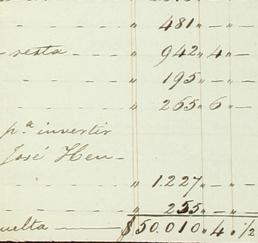 " 481 " — " —
— sesta — " 942 " 4 " —
— " 195 " — " —
— " 265 " 6 " —
pª invertir
José Hen-
— " 1.227 " — " —
— " 255 " — " —
vuelta — $ 50.010 " 4 " ½